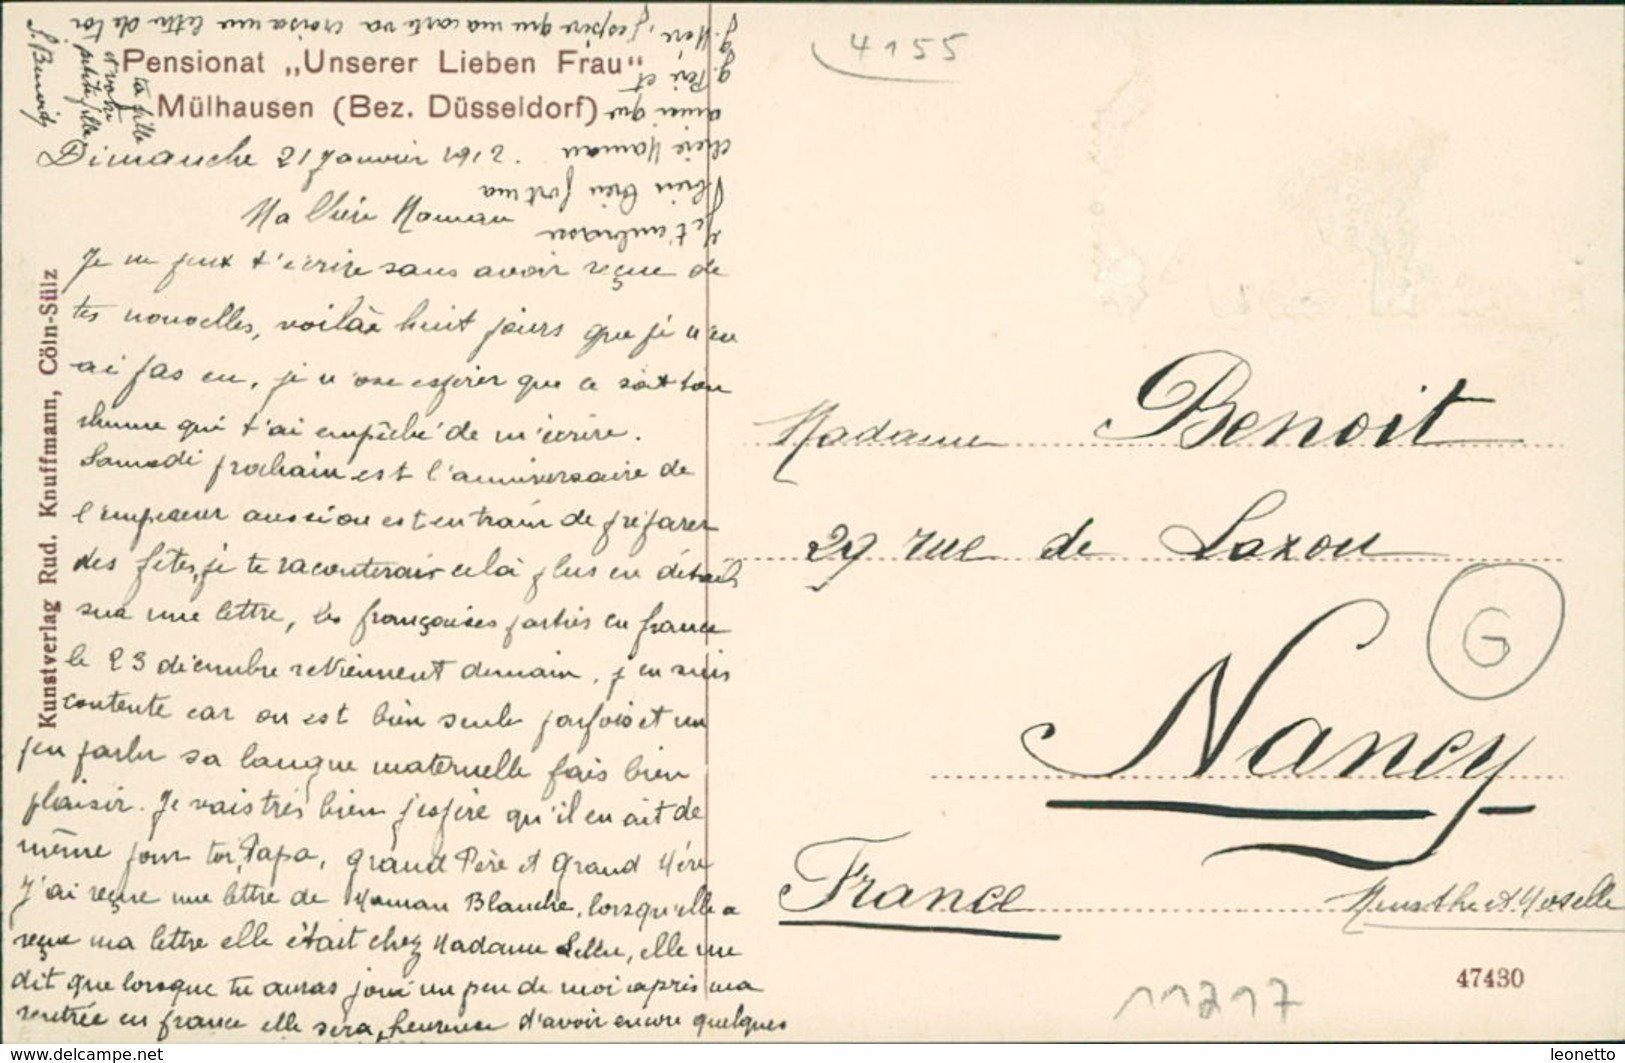 Pensionat „Unserer Lieben Frau"
Mülhausen (Bez. Düsseldorf)
Dimanche 21 Janvier 1912.
Ma Chère Maman
Je ne peux t'écrire sans avoir reçue de
tes nouvelles, voilà huit jours que je n'en
ai pas eu, je n'ose espérer que ce soit ton
rhume qui t'ai empêché de m'écrire.
Samedi prochain est l'anniversaire de
l'empereur aussi on est en train de préparer
des fêtes, je te raconterais cela plus en détails
sur une lettre, les françaises parties en france
le 23 décembre reviennent demain, j'en suis
contente car on est bien seule parfois et un
peu parler sa langue maternelle fais bien
plaisir. Je vais très bien j'espère qu'il en ait de
même pour toi, Papa, grand Père et Grand Mère
J'ai reçue une lettre de Maman Blanche, lorsqu'elle a
reçue ma lettre elle était chez Madame, elle me
dit que lorsque tu auras joui un peu de moi après ma
rentrée en france elle sera heureuse d'avoir encore quelques
g. Mère, j'espère que ma carte va croisa une lettre de toi
g. Père et
ainsi que
chère Maman
bien bien fort ma
Je t'embrasse
ta fille
et votre
petite fille
Kunstverlag Rud. Knuffmann, Cöln-Sülz
4155
Madame Benoit
29 rue de Laxou
Nancy
G
France
Meurthe et Moselle
47430
11217
leonetto
www.delcampe.net